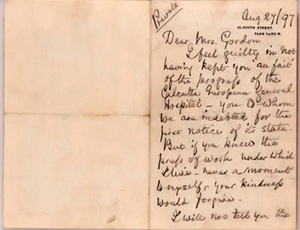 Private
Aug 27/97
10, SOUTH STREET,
PARK LANE, W.
Dear Mrs. Gordon
I feel guilty in not
having kept you "au fait"
of the progress of the
Calcutta European General
Hospital - you to whom
we are indebted for the
first notice of its state.
But if you knew the
press of work under which
I live - never a moment
to myself - your kindness
would forgive.
I will not tell you the